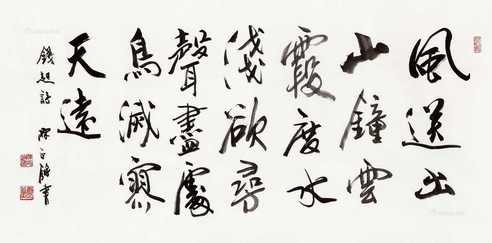 風送出
山鐘雲
霞度水
淺欲尋
聲盡處
鳥滅寥
天遠
錢起詩 書